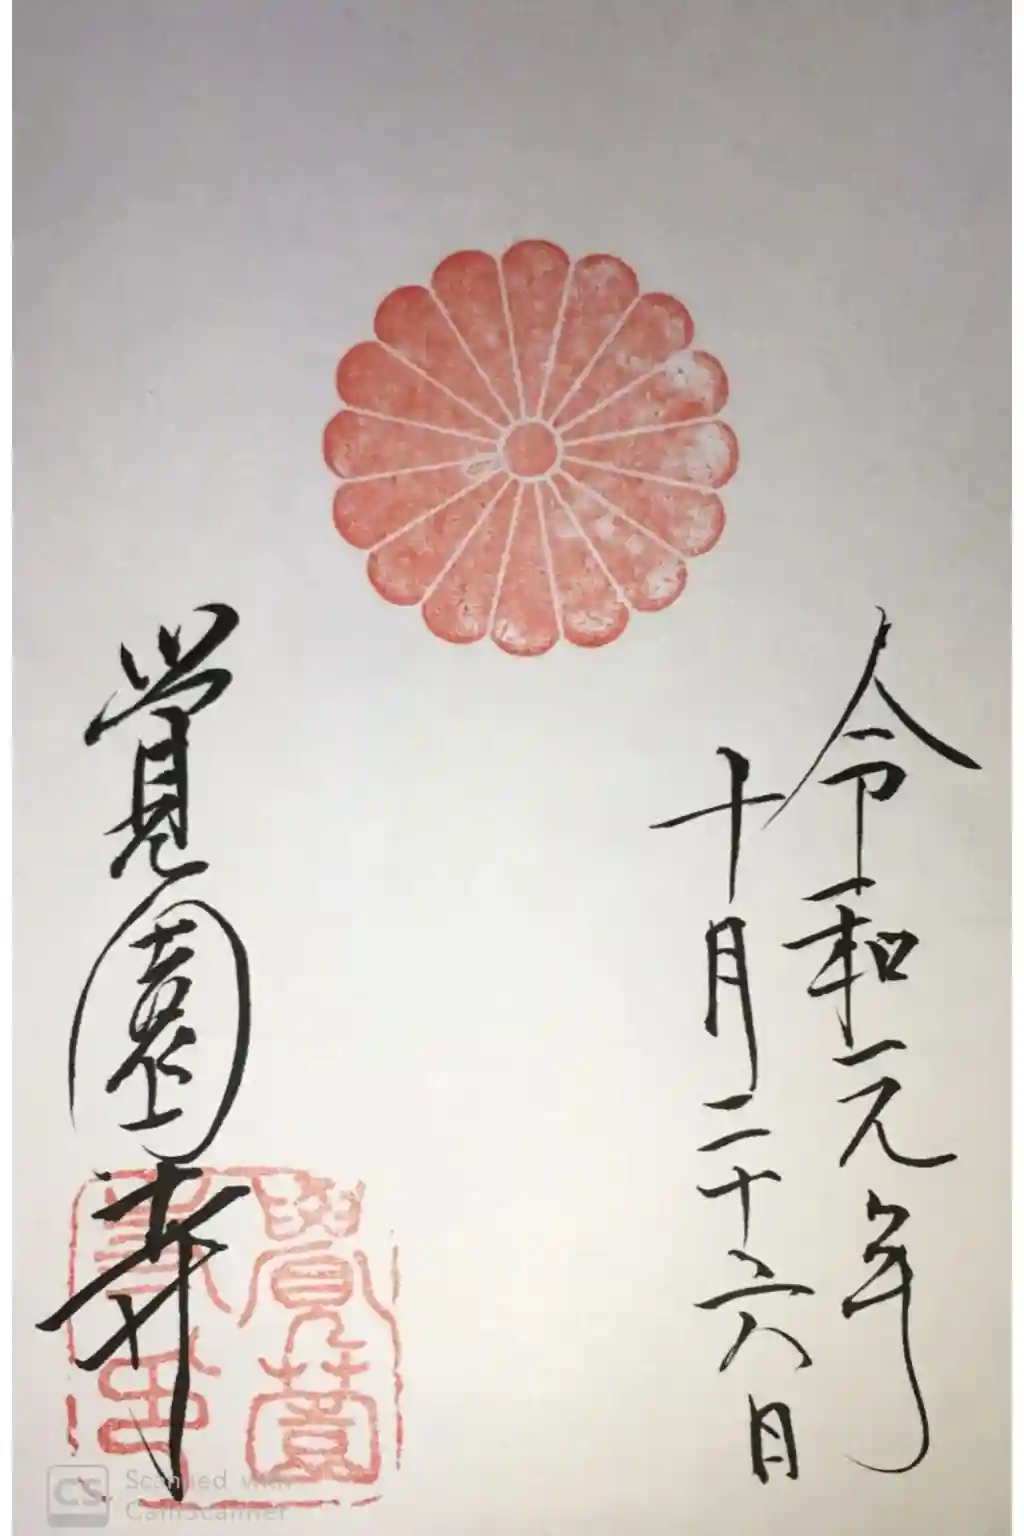 令和元年
十月二十六日
覚園寺
覺園寺印
CS Scanned with
CamScanner